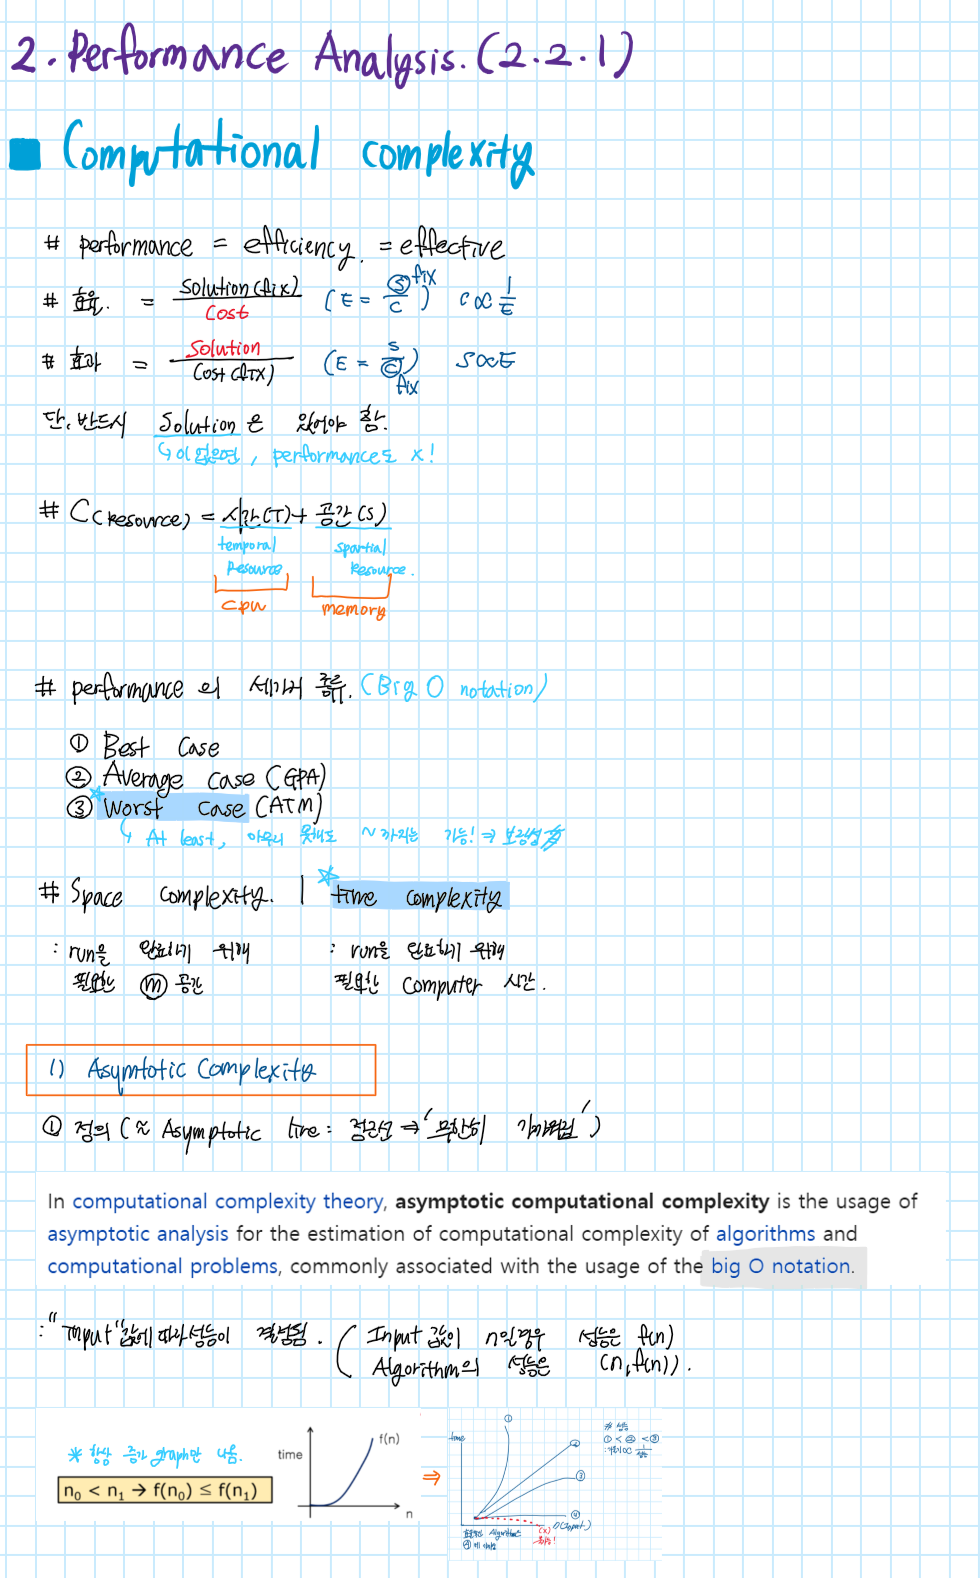 2. Performance Analysis. (2.2.1)
■ Computational complexity
# performance = efficiency. = effective
# 효율. = Solution(fix) / Cost (E = Ⓢ/C) fix C ∝ 1/E
# 효과 = Solution / Cost(fix) (E = S/Ⓒ) fix S∝E
단, 반드시 Solution은 있어야 함.
↳이 없으면, performance도 X!
# C(Resource) = 시간(T) + 공간(S)
temporal Resource spartial Resource.
cpu memory
# performance의 세가지 종류. (Big O notation)
① Best Case
② Average Case (GPA)
③ Worst Case (ATM)
↳ At least, 아무리 못해도 ~까지는 가능! ⇒ 보장성
# Space Complexity. | time Complexity
: run을 완료하기 위해 : run을 완료하기 위해
필요한 ⓜ 공간 필요한 Computer 시간.
1) Asymtotic Complexity
① 정의 (≈ Asymptotic line : 점근선 ⇒ '무한히 가까워짐')
In computational complexity theory, asymptotic computational complexity is the usage of
asymptotic analysis for the estimation of computational complexity of algorithms and
computational problems, commonly associated with the usage of the big O notation.
: "Input"값에 따라 성능이 결정됨. ( Input 값이 n일 경우 성능은 f(n)
Algorithm의 성능은 (n, f(n)).
* 항상 증가 graph만 나옴.
n₀ < n₁ → f(n₀) ≤ f(n₁)
time f(n) n
⇒
time ① ② ③ ④ n(Input)
# 성능
① < ② < ③